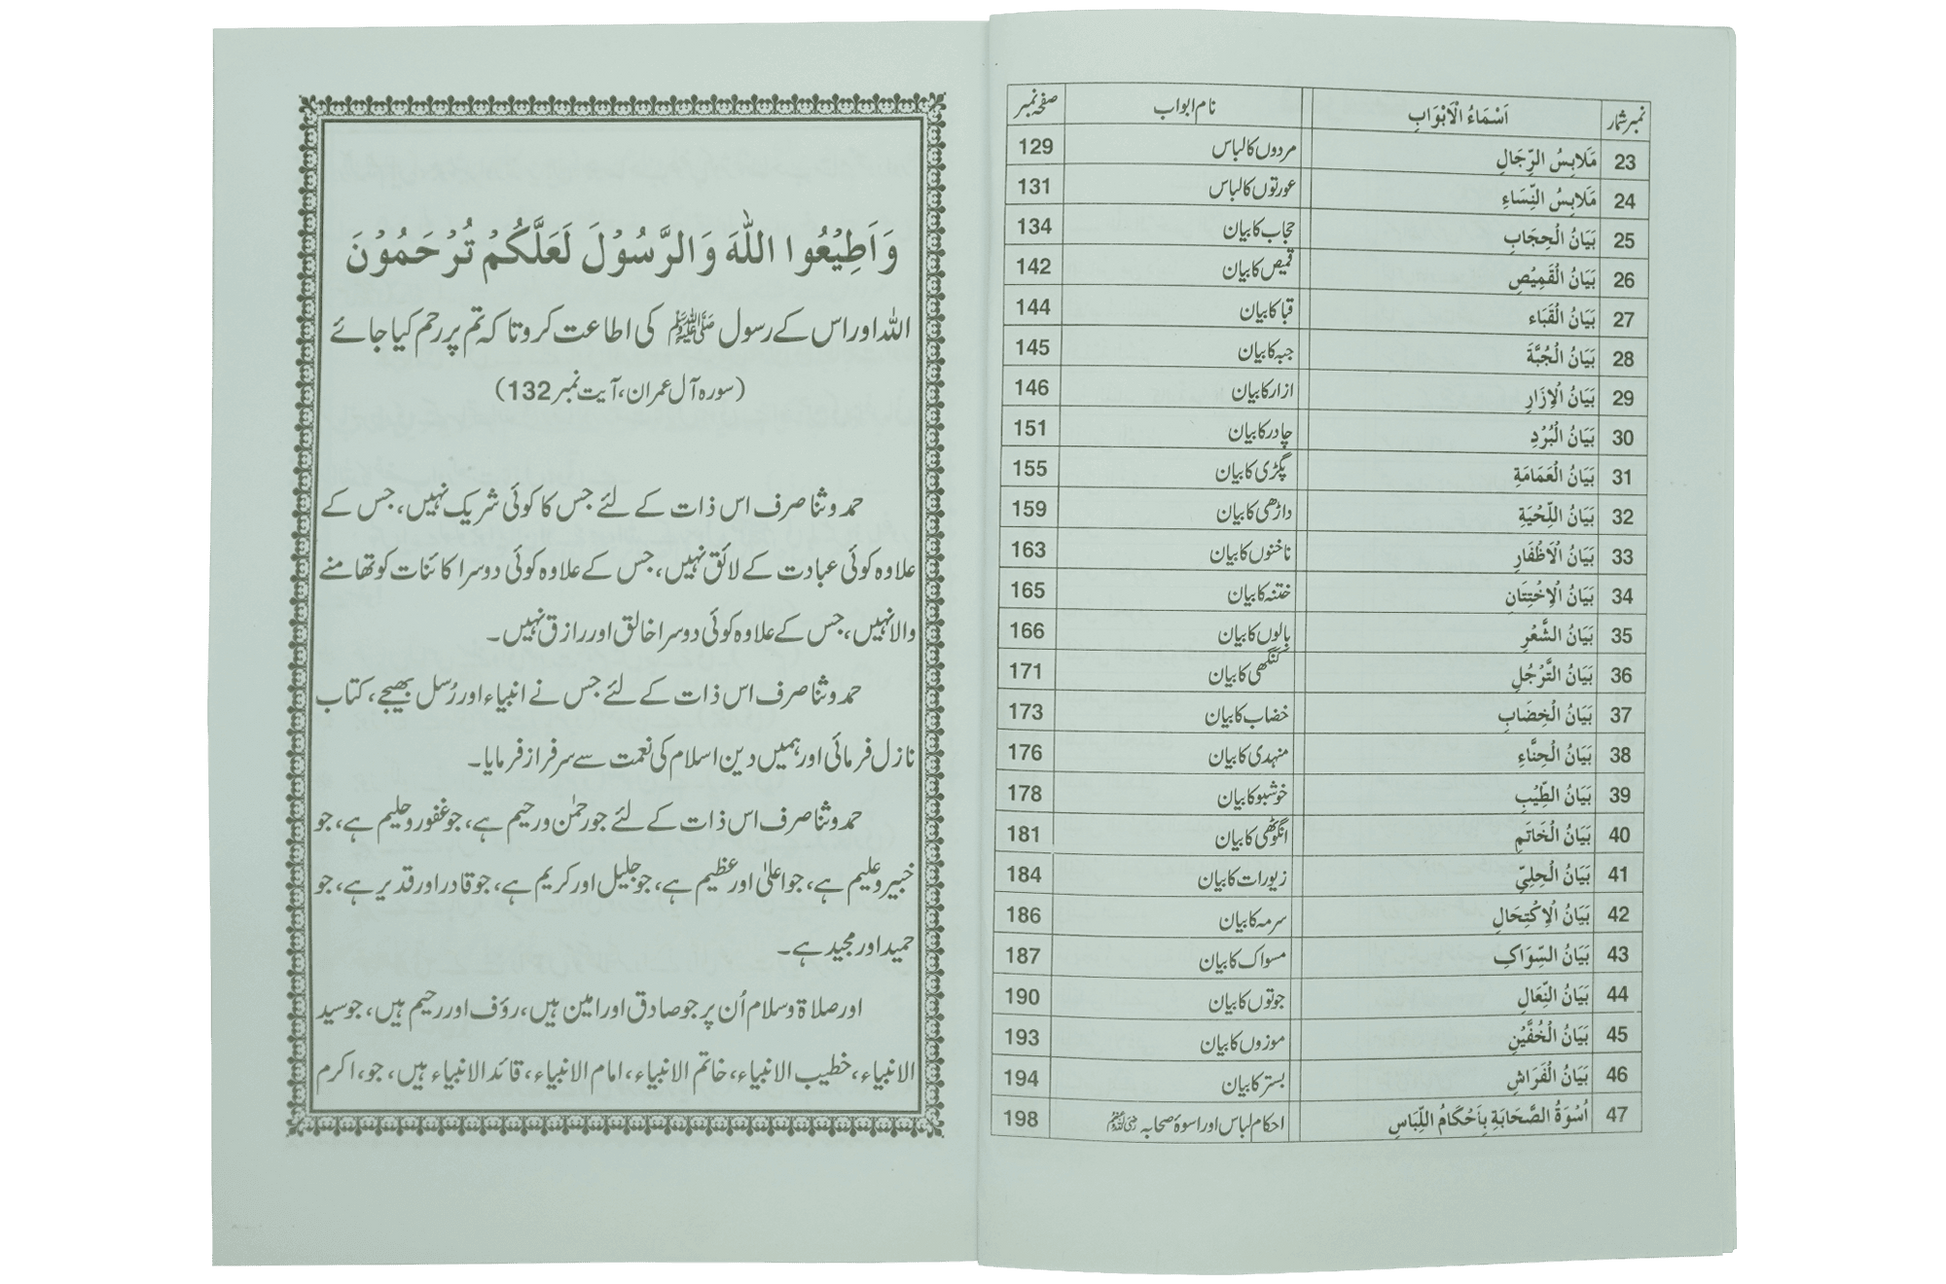 نمبر شمار اَسْمَاءُ الْاَبْوَابِ نام ابواب صفحہ نمبر
23 مَلَابِسُ الرِّجَالِ مردوں کا لباس 129
24 مَلَابِسُ النِّسَاءِ عورتوں کا لباس 131
25 بَيَانُ الْحِجَابِ حجاب کا بیان 134
26 بَيَانُ الْقَمِيْصِ قمیص کا بیان 142
27 بَيَانُ الْقَبَاء قبا کا بیان 144
28 بَيَانُ الْجُبَّةَ جبہ کا بیان 145
29 بَيَانُ الْاِزَارِ ازار کا بیان 146
30 بَيَانُ الْبُرْدِ چادر کا بیان 151
31 بَيَانُ الْعَمَامَةِ پگڑی کا بیان 155
32 بَيَانُ اللِّحْيَةِ داڑھی کا بیان 159
33 بَيَانُ الْاَظْفَارِ ناخنوں کا بیان 163
34 بَيَانُ الْاِخْتِتَانِ ختنہ کا بیان 165
35 بَيَانُ الشَّعْرِ بالوں کا بیان 166
36 بَيَانُ التَّرَجُلِ کنگھی کا بیان 171
37 بَيَانُ الْخِضَابِ خضاب کا بیان 173
38 بَيَانُ الْحِنَّاءِ منہدی کا بیان 176
39 بَيَانُ الطِّيْبِ خوشبو کا بیان 178
40 بَيَانُ الْخَاتَمِ انگوٹھی کا بیان 181
41 بَيَانُ الْحِلِيِّ زیورات کا بیان 184
42 بَيَانُ الْاِكْتِحَالِ سرمہ کا بیان 186
43 بَيَانُ السِّوَاكِ مسواک کا بیان 187
44 بَيَانُ النِّعَالِ جوتوں کا بیان 190
45 بَيَانُ الْخُفَّيْنِ موزوں کا بیان 193
46 بَيَانُ الْفَرَاشِ بستر کا بیان 194
47 اُسْوَةُ الصَّحَابَةِ بِاَحْكَامُ اللِّبَاسِ احکام لباس اور اسوۂ صحابہ ؓ 198
وَاَطِيْعُوا اللّٰهَ وَالرَّسُوْلَ لَعَلَّكُمْ تُرْحَمُوْنَ
اللہ اور اس کے رسول ﷺ کی اطاعت کرو تاکہ تم پر رحم کیا جائے
(سورہ آل عمران، آیت نمبر 132)
حمد و ثنا صرف اس ذات کے لئے جس کا کوئی شریک نہیں، جس کے
علاوہ کوئی عبادت کے لائق نہیں، جس کے علاوہ کوئی دوسرا کائنات کو تھامنے
والا نہیں، جس کے علاوہ کوئی دوسرا خالق اور رازق نہیں۔
حمد و ثنا صرف اس ذات کے لئے جس نے انبیاء اور رُسل بھیجے، کتاب
نازل فرمائی اور ہمیں دین اسلام کی نعمت سے سرفراز فرمایا۔
حمد و ثنا صرف اس ذات کے لئے جو رحمٰن و رحیم ہے، جو غفور و حلیم ہے، جو
خبیر و علیم ہے، جو اعلیٰ اور عظیم ہے، جو جلیل اور کریم ہے، جو قادر اور قدیر ہے، جو
حمید اور مجید ہے۔
اور صلاۃ و سلام اُن پر جو صادق اور امین ہیں، رؤف اور رحیم ہیں، جو سید
الانبیاء، خطیب الانبیاء، خاتم الانبیاء، امام الانبیاء، قائد الانبیاء ہیں، جو، اکرم